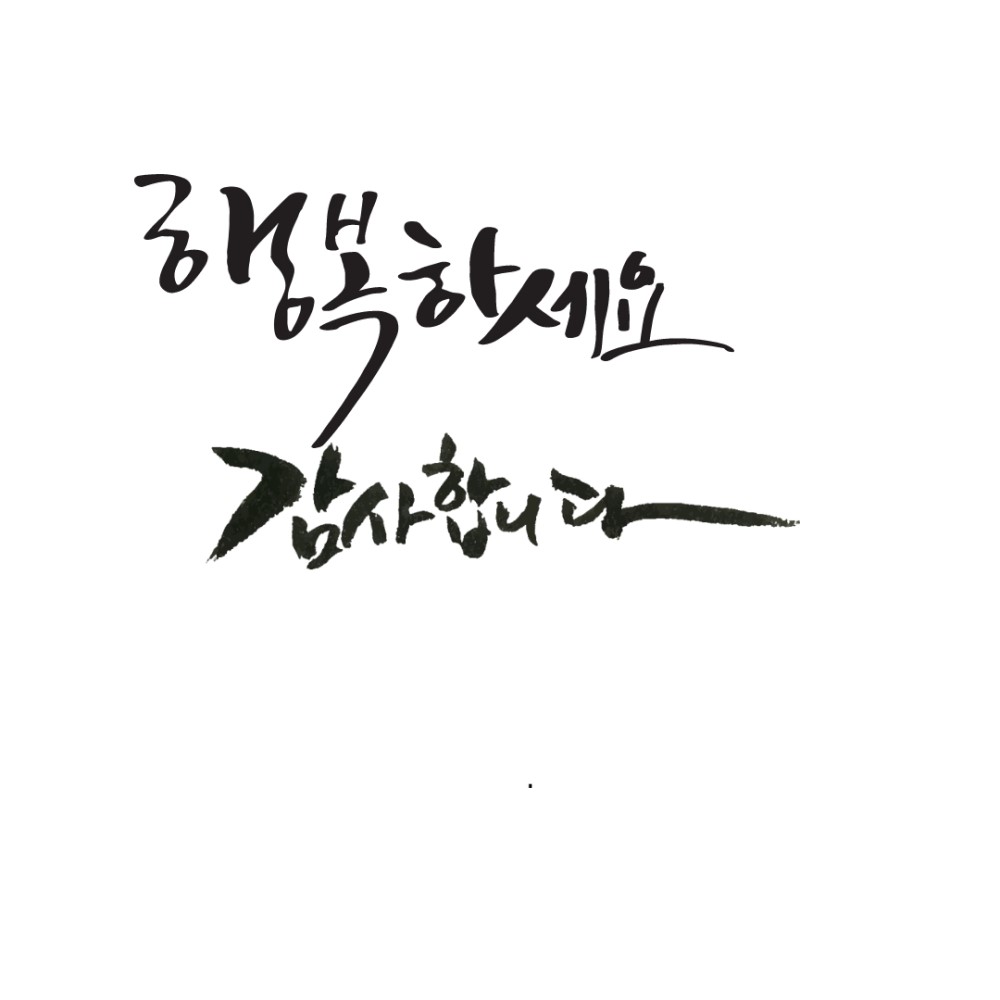 행복하세요
감사합니다
.